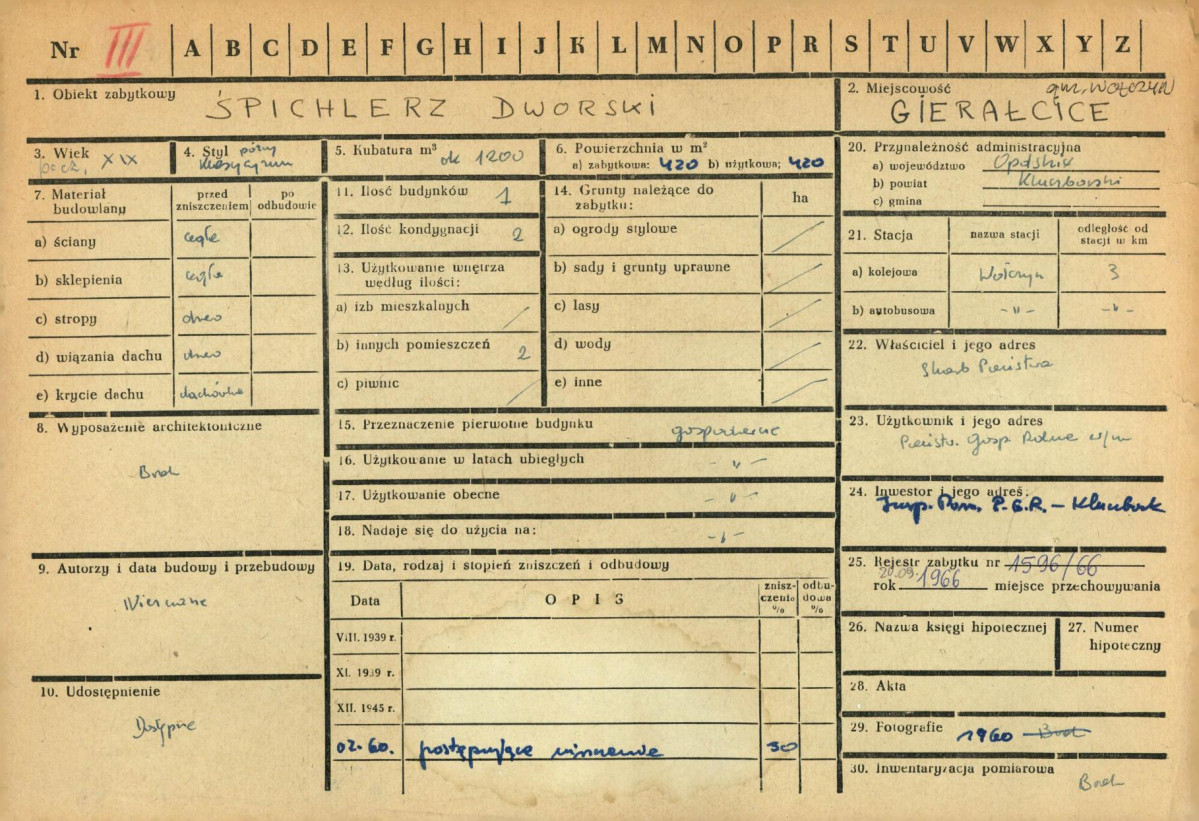 Nr III A B C D E F G H I J K L M N O P R S T U V W X Y Z
1. Obiekt zabytkowy ŚPICHLERZ DWORSKI
2. Miejscowość gm. WOŁCZYN
GIERAŁCICE
3. Wiek pocz. XIX
4. Styl późny klasycyzm
5. Kubatura m³ ok 1200
6. Powierzchnia w m²
a) zabytkowa: 420 b) użytkowa: 420
7. Materiał budowlany
przed zniszczeniem
po odbudowie
a) ściany cegła
b) sklepienia cegła
c) stropy drewo
d) wiązania dachu drewo
e) krycie dachu dachówka
8. Wyposażenie architektoniczne
Brak
9. Autorzy i data budowy i przebudowy
Nieznane
10. Udostępnienie
Dostępne
11. Ilość budynków 1
12. Ilość kondygnacji 2
13. Użytkowanie wnętrza
według ilości:
a) izb mieszkalnych /
b) innych pomieszczeń 2
c) piwnic /
14. Grunty należące do
zabytku: ha
a) ogrody stylowe /
b) sady i grunty uprawne /
c) lasy /
d) wody /
e) inne /
15. Przeznaczenie pierwotne budynku gospodarcze
16. Użytkowanie w latach ubiegłych -"-
17. Użytkowanie obecne -"-
18. Nadaje się do użycia na: -"-
19. Data, rodzaj i stopień zniszczeń i odbudowy
Data OPIS zniszczenie % odbudowa %
VIII. 1939 r.
XI. 1939 r.
XII. 1945 r.
02.60. postępujące niszczenie 30
20. Przynależność administracyjna
a) województwo Opolskie
b) powiat Kluczborski
c) gmina
21. Stacja nazwa stacji odległość od stacji w km
a) kolejowa Wołczyn 3
b) autobusowa -"- -"-
22. Właściciel i jego adres
Skarb Państwa
23. Użytkownik i jego adres
Państw. Gosp. Rolne w/m
24. Inwestor i jego adres:
Insp. P.G.R. – Kluczbork
25. Rejestr zabytku nr 1596/66
20.09.
rok 1966 miejsce przechowywania
26. Nazwa księgi hipotecznej
27. Numer
hipoteczny
28. Akta
29. Fotografie 1960 Brak
30. Inwentaryzacja pomiarowa
Brak